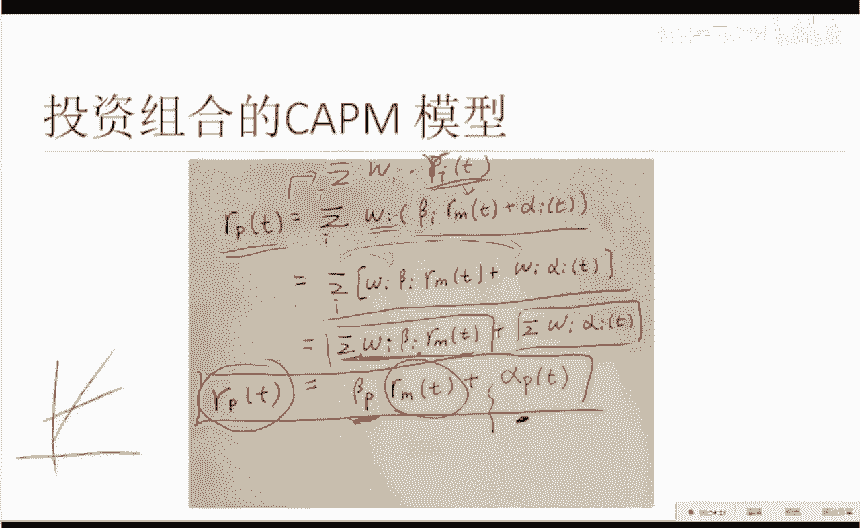 投资组合的CAPM 模型
Σ wᵢ · rᵢ(t)
rₚ(t) = Σᵢ wᵢ(βᵢ rₘ(t) + αᵢ(t))
= Σᵢ [wᵢ βᵢ rₘ(t) + wᵢ αᵢ(t)]
= Σ wᵢ βᵢ rₘ(t) + Σ wᵢ αᵢ(t)
rₚ(t) = βₚ rₘ(t) + αₚ(t)